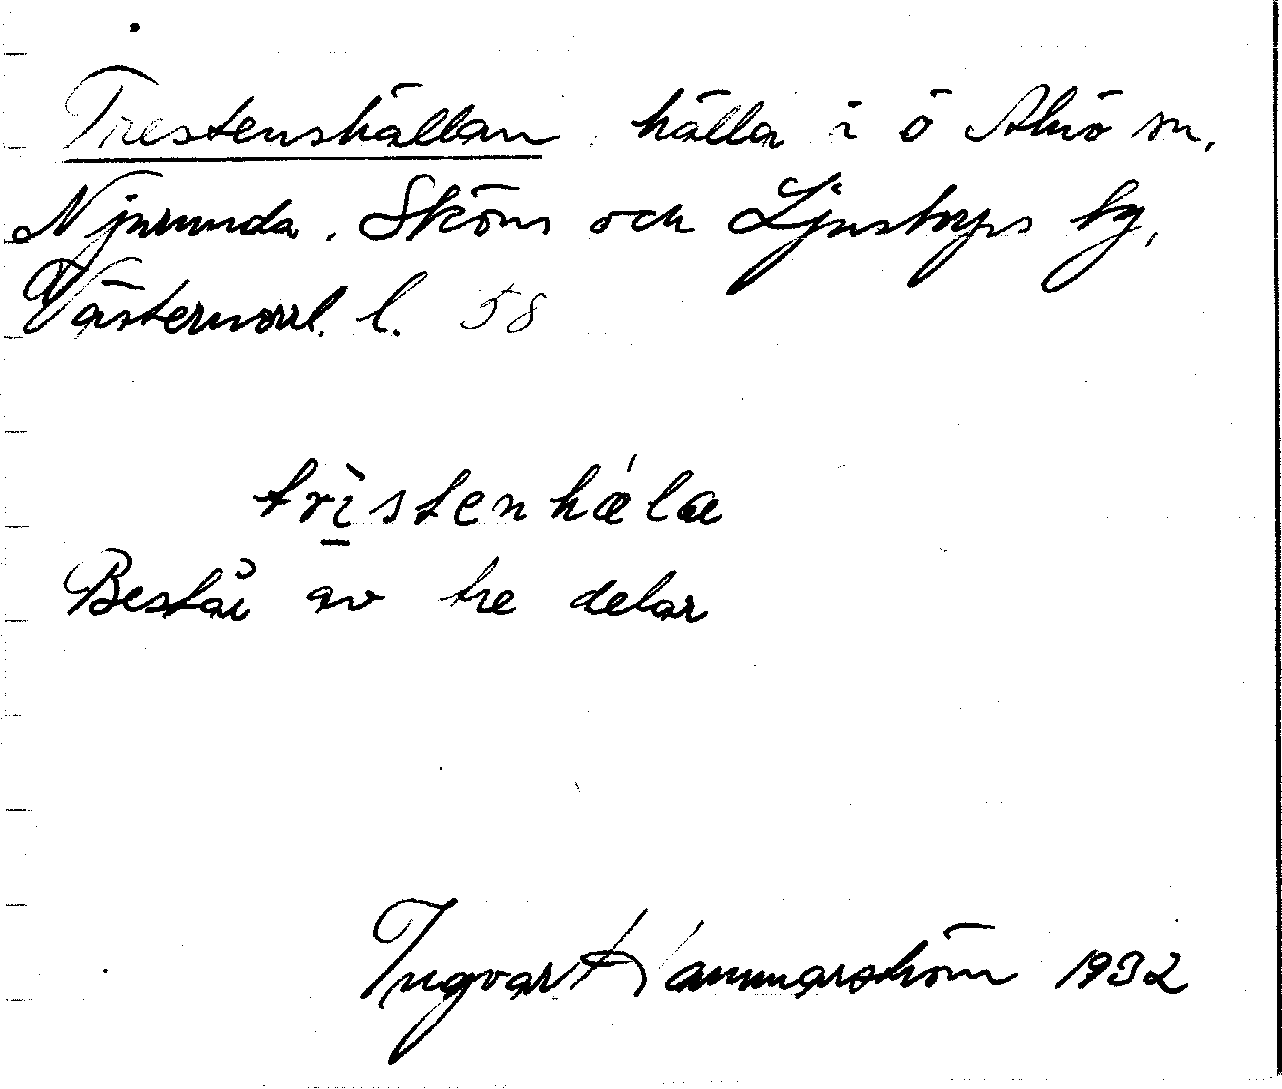 Trestenshällan hälla i ö Alnö sn,
Njurunda, Sköns och Ljustorps tg,
Västernorrl. l. 58
tristenhæla
Består av tre delar
Ingvar Hammarström 1932